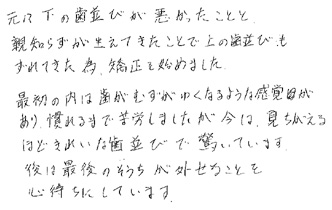 元々下の歯並びが悪かったことと、
親知らずが生えてきたことで上の歯並びも
ずれてきた為、矯正を始めました。
最初の内は歯がむずがゆくなるような感覚が
あり、慣れるまで苦労しましたが今は、見ちがえる
ほどきれいな歯並びで驚いています。
後は最後のそうちが外せることを
心待ちにしています。